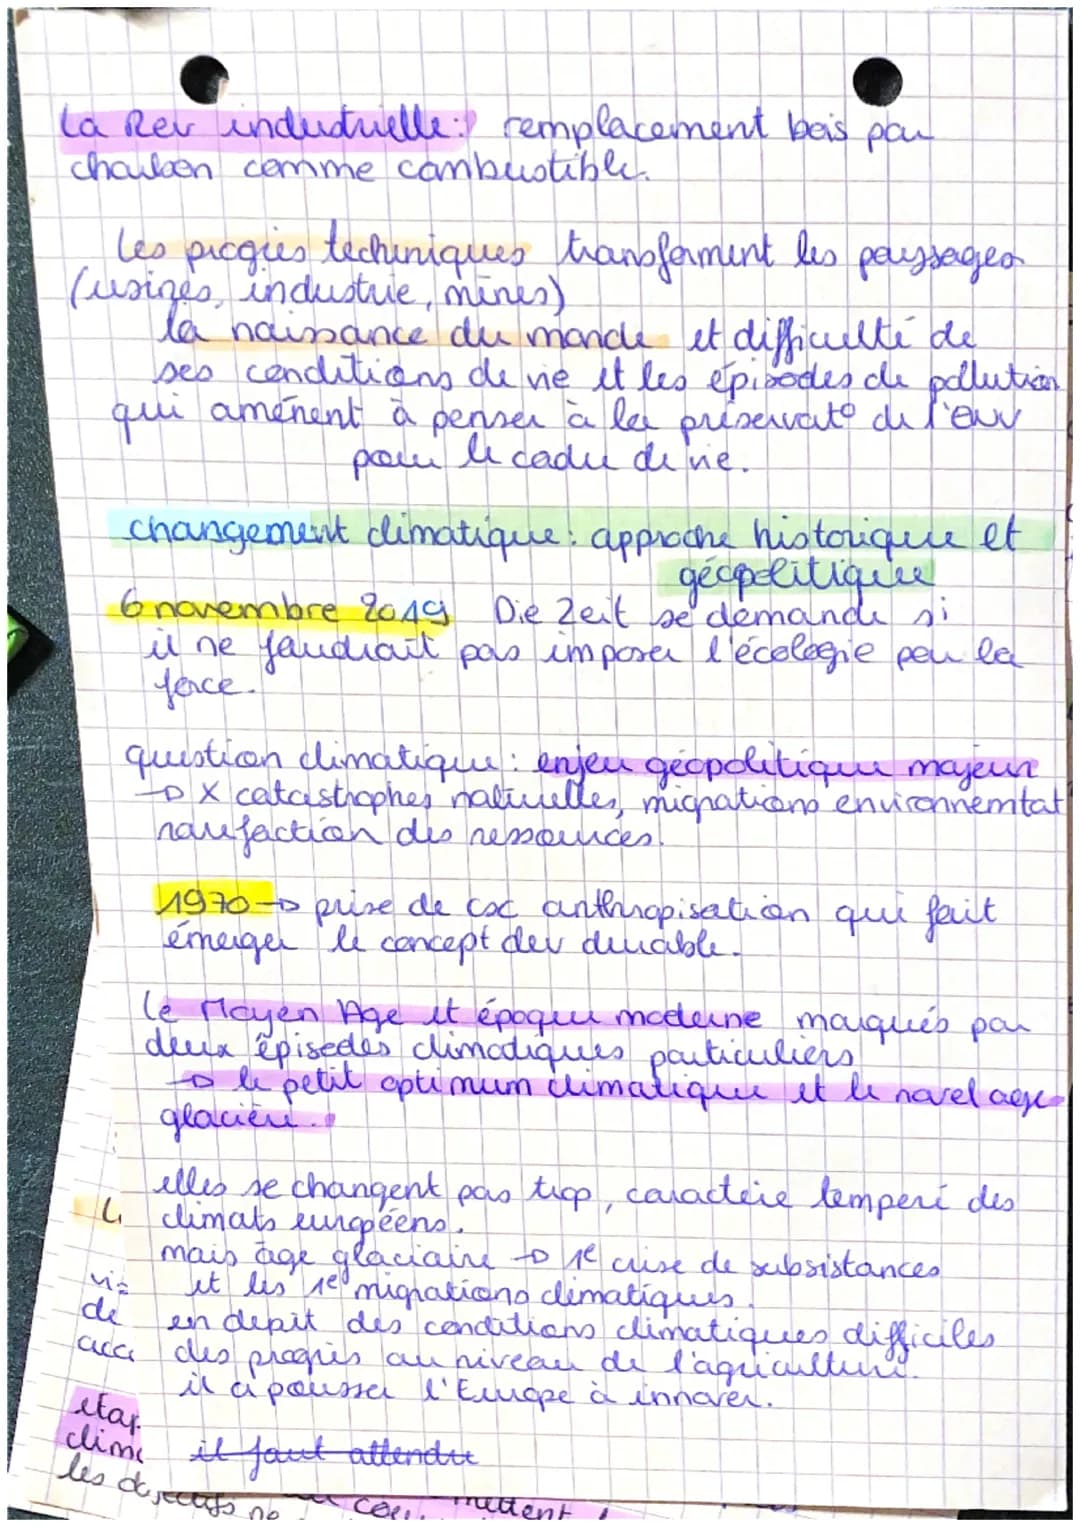 La Rev industrielle: remplacement bois par
charbon comme combustible.
Les progrès techniques transforment les payssages
(usines, industrie, mines)
la naissance du monde et difficulté de
ses conditions de vie et les épisodes de pollution
qui amènent à penser à la préservat° de l'env
pour le cadre de vie.
changement climatique: approche historique et
géopolitique
6 novembre 2019 Die Zeit se demande si
il ne faudrait pas imposer l'écologie par la
force.
question climatique: enjeu géopolitique majeur
→ X catastrophes naturelles, migrations environnemtat
raréfaction des ressources.
1970 → prise de csc anthropisation qui fait
émerger le concept dev durable.
Le Moyen Age et époque moderne marqués par
deux épisodes climatiques particuliers
→ le petit optimum climatique et le novel age
glacière.
elles se changent pas trop, caractère temperé des
climats européens.
mais âge glaciaire → 1e crise de subsistances
et les 1e migrations climatiques.
en depit des conditions climatiques difficiles
des progrès au niveau de l'agriculture.
il a pousser l'Europe à innover.
il faut attendre
L
vi
de
acc
etap
clim
les objectifs ne
mettent